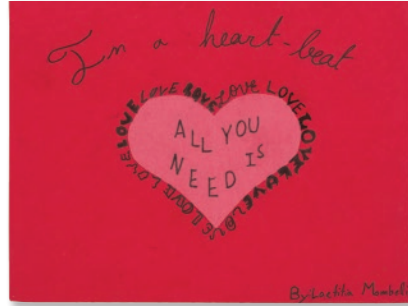 In a heart-beat
LOVE LOVE LOVE LOVE LOVE LOVE LOVE LOVE LOVE LOVE LOVE
ALL YOU
NEED IS
By: Laetitia